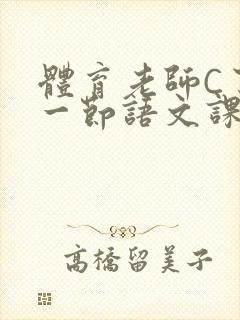 體育老師C了
一節語文課
高橋留美子